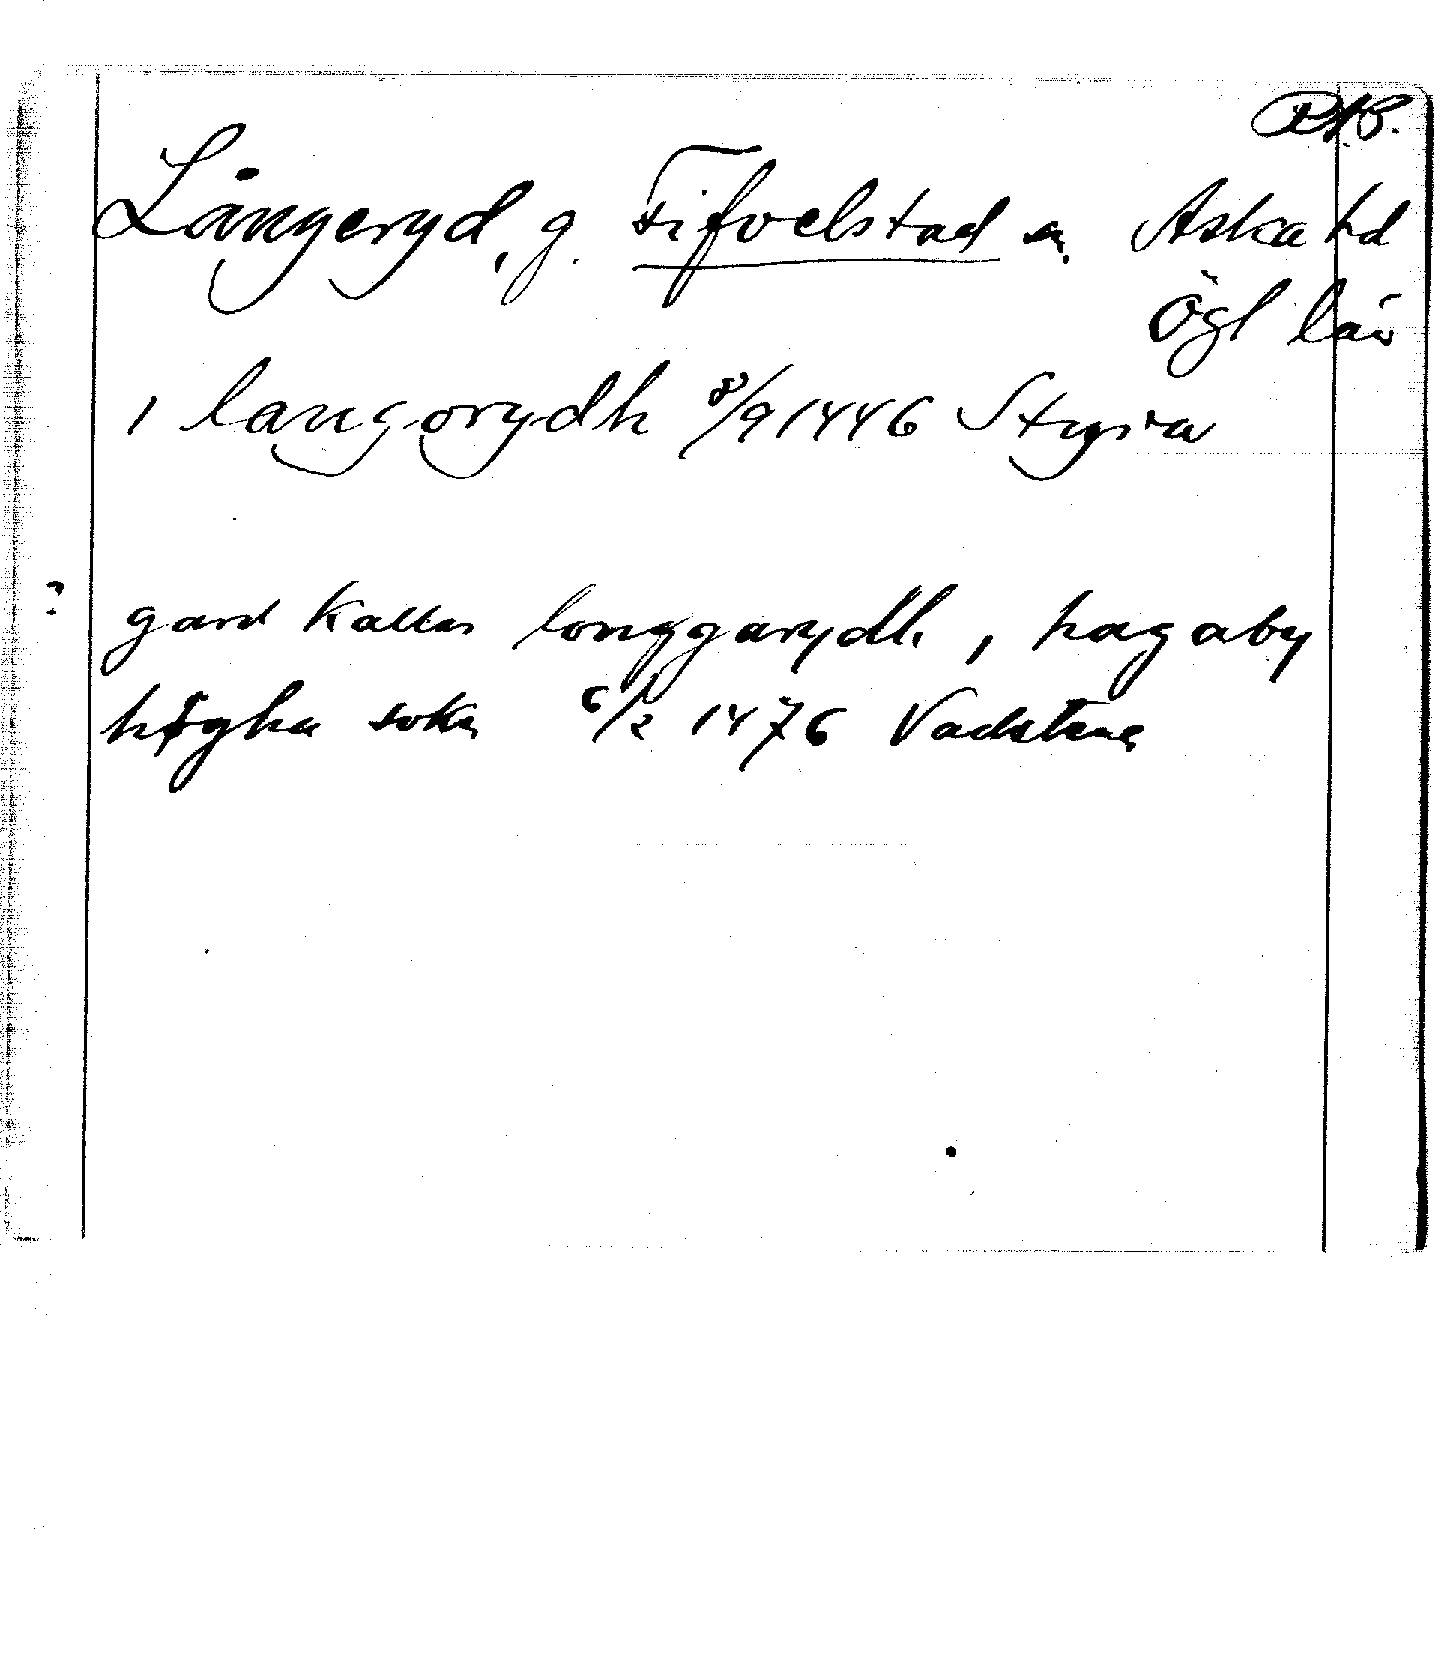 RAP.
Långeryd, g. Fifvelstad sn. Aska hd
Ögl län
i langorydh 8/9 1446 Styra
? gard kallas longgarydh i hagaby
høgha sokn 6/2 1476 Vadstena